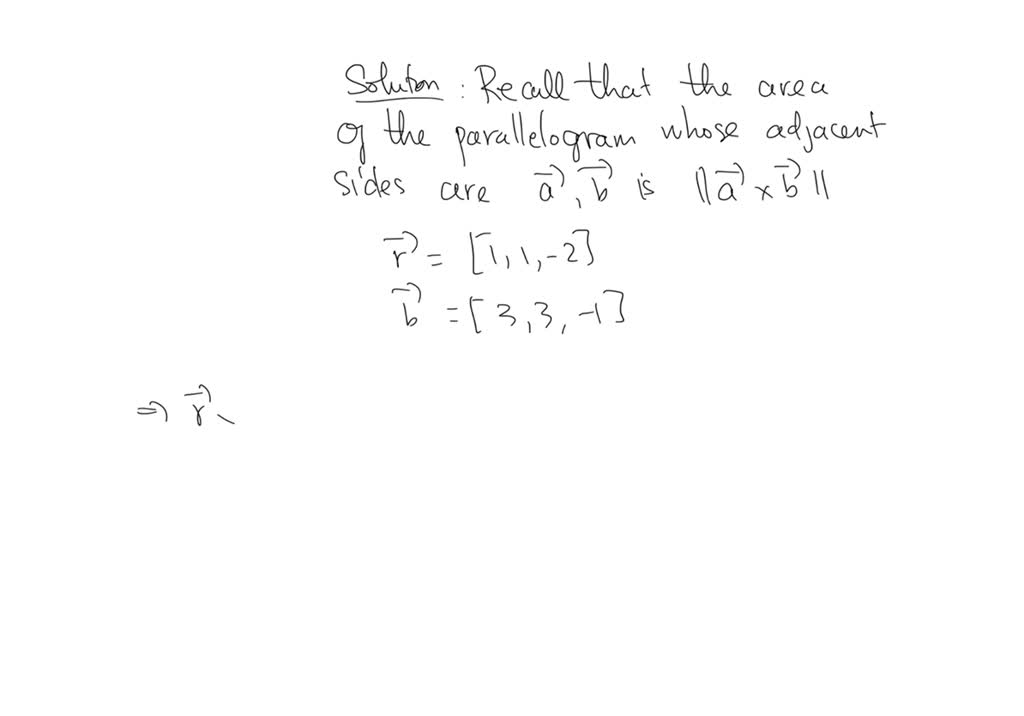 Solution : Recall that the area
of the parallelogram whose adjacent
sides are a⃗, b⃗ is ||a⃗ × b⃗||
r⃗ = [1, 1, -2]
b⃗ = [3, 3, -1]
⇒ r⃗ \